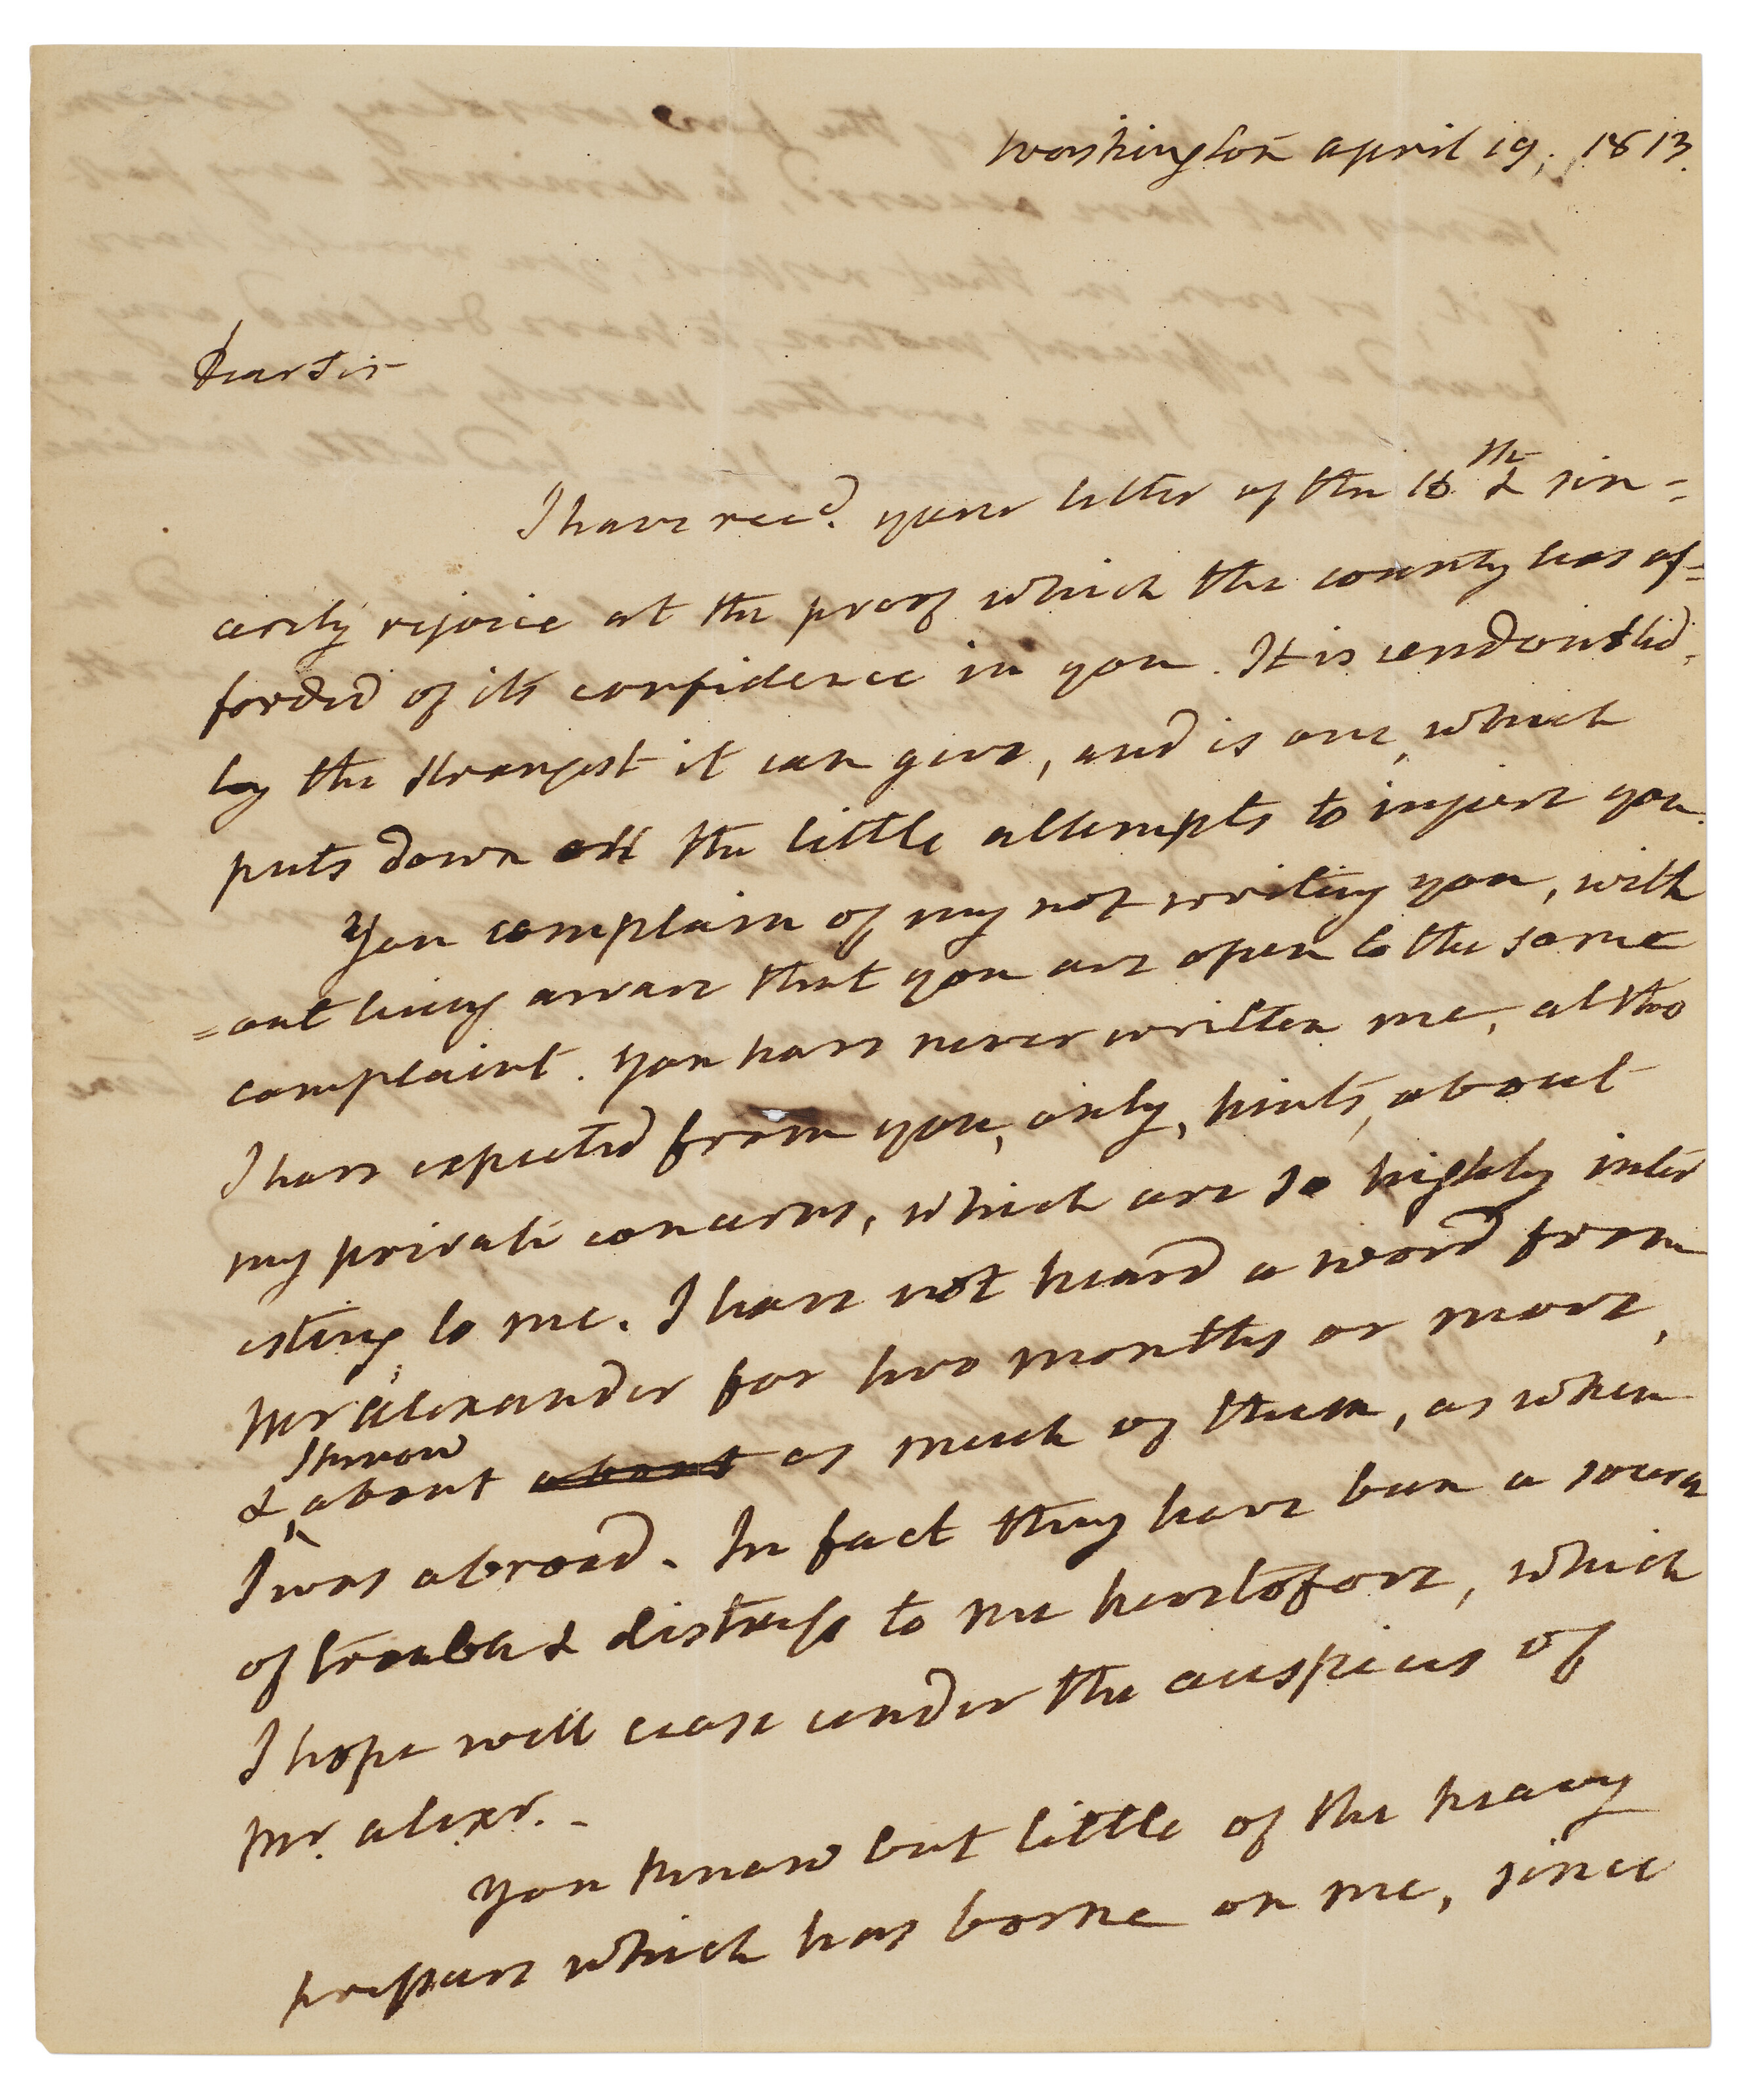 Washington april 19, 1813.
Dear Sir
I have recd. your letter of the 16th & sin=
cerely rejoice at the proof which the county has af=
forded of its confidence in you. It is undoubted=
ly the strongest it can give, and is one, which
puts down all the little attempts to injure you.
You complain of my not writing you, with
=out being aware that you are open to the same
complaint. You have never written me, altho
I have expected from you, only, hints, about
my private concerns, which are so highly inter
esting to me. I have not heard a word from
Mr Alexander for two months or more,
& I know about about as much of them, as when
I was abroad. In fact they have been a source
of trouble & distress to me heretofore, which
I hope will cease under the auspices of
Mr. alexr. -
You know but little of the heavy
pressure which has borne on me, since